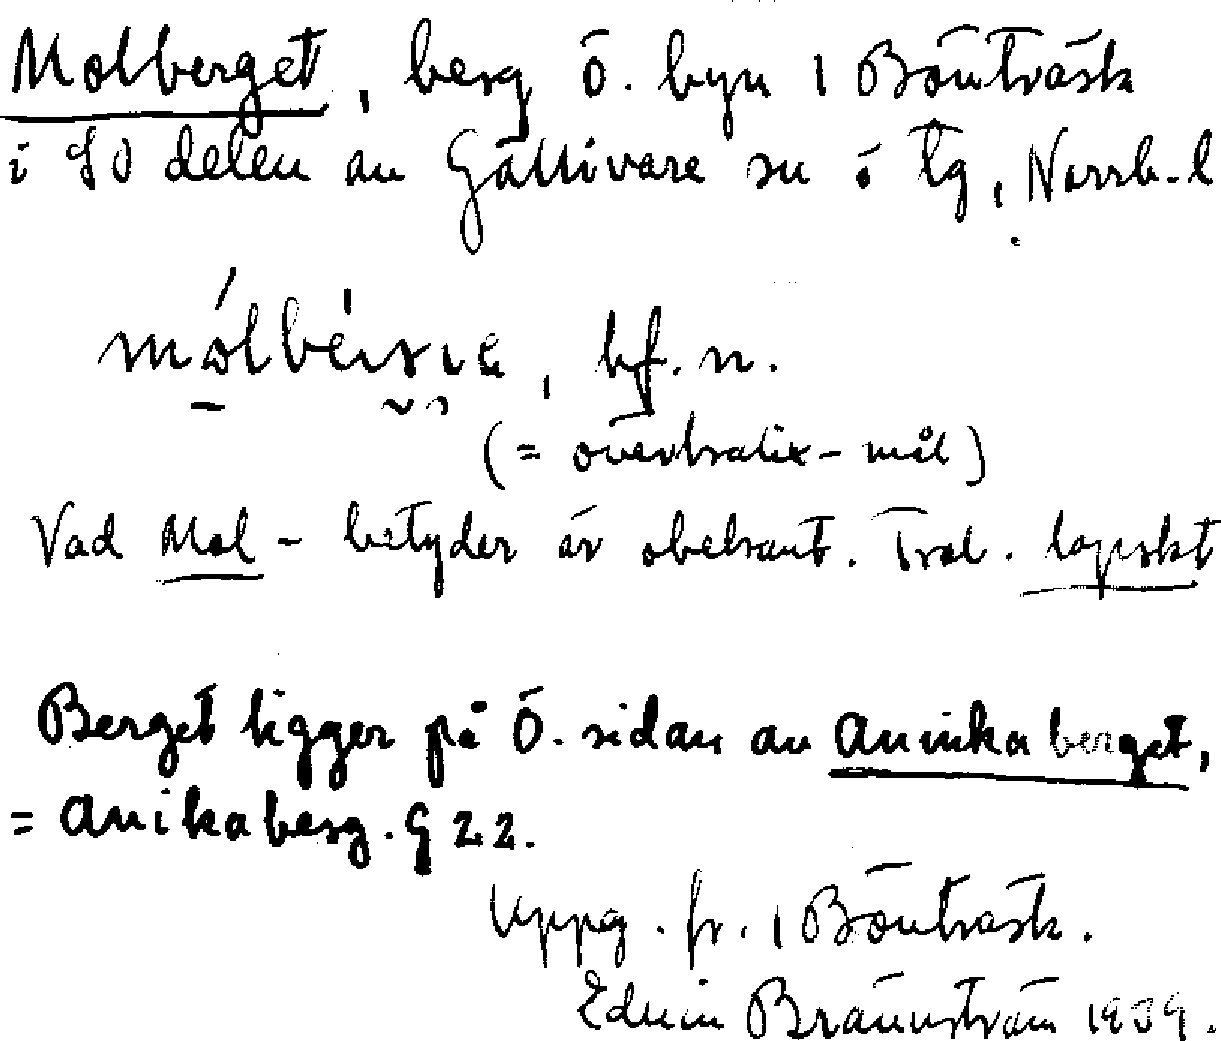 Molberget, berg ö. byn 1 Bönträsk
i SO delen av Gällivare sn o tg, Norrb-l
mólbérjɛ, bf. n.
(= överkalix-mål)
Vad Mol- betyder är obekant. Trol. lapskt
Berget ligger på Ö. sidan av Annikaberget,
= Anikaberg. G 22.
Uppg. fr. 1 Bönträsk.
Edvin Brännström 1939.